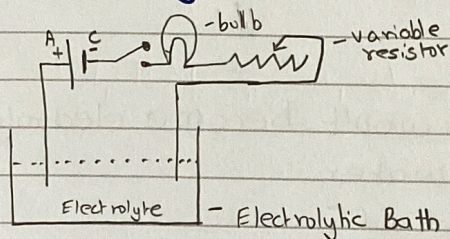 A C - bulb
+ -
- variable
resistor
Electrolyte - Electrolytic Bath